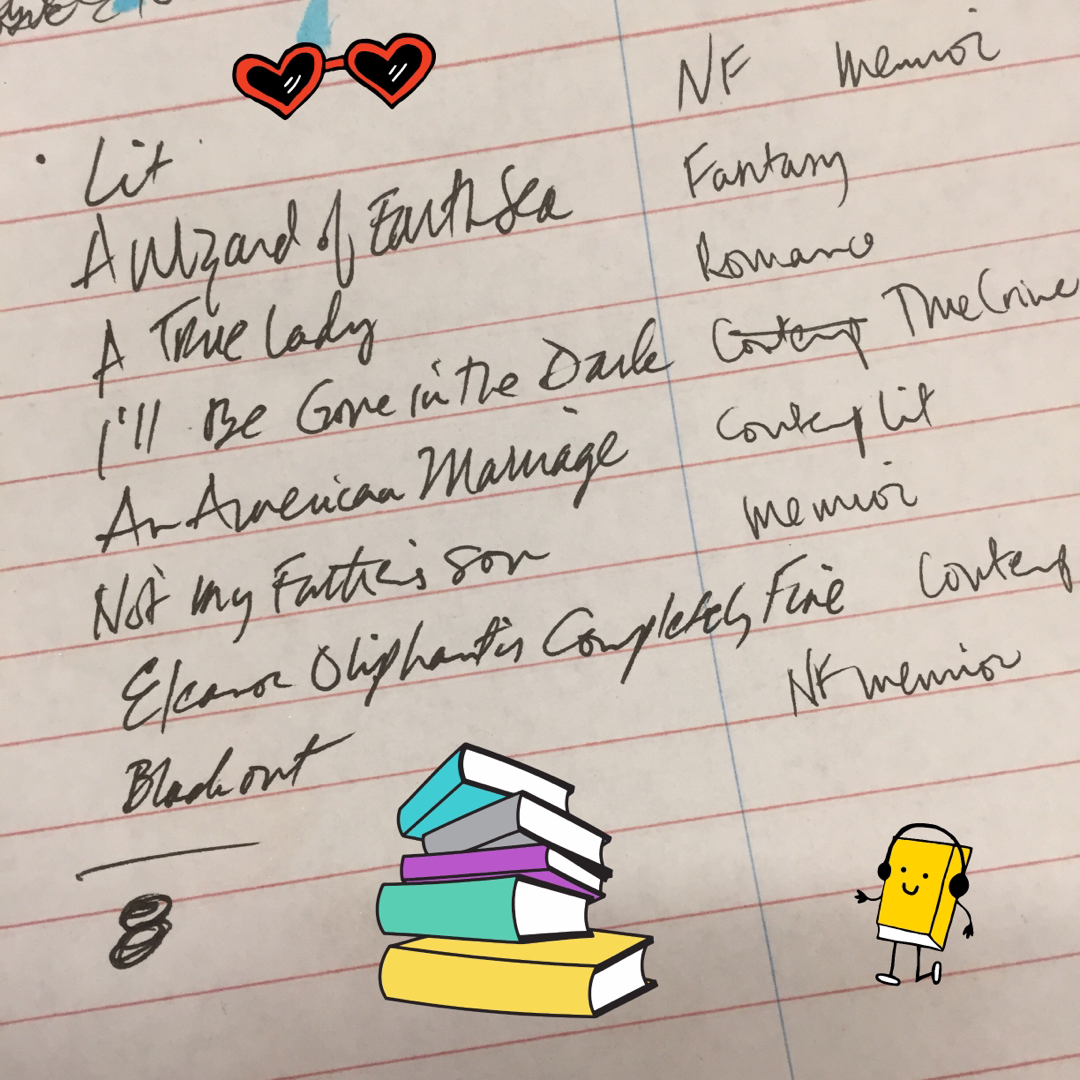 NF memoir
Lit
Fantasy
A Wizard of EarthSea
Romance
A True Lady
Contemp True Crime
I'll Be Gone in the Dark
Contemp Lit
An American Marriage
Memoir
Not my Father's Son
Eleanor Oliphant is Completely Fine Contemp
NF memoir
Blackout
8